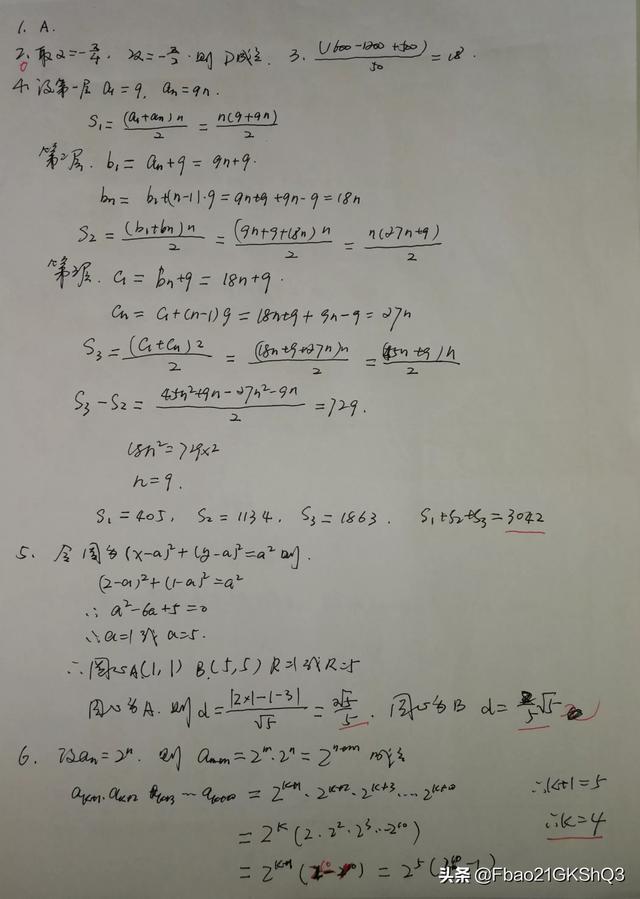 1. A.
2. 取α=-π/4, 2α=-π/2. 则D成立. 3. (1600-1200+500)/50=18.
4. 设第一层 a₁=9, aₙ=9n.
S₁=(a₁+aₙ)n/2=n(9+9n)/2
第2层. b₁=aₙ+9=9n+9.
bₙ=b₁+(n-1)·9=9n+9+9n-9=18n
S₂=(b₁+bₙ)n/2=(9n+9+18n)n/2=n(27n+9)/2
第3层. C₁=bₙ+9=18n+9.
Cₙ=C₁+(n-1)9=18n+9+9n-9=27n
S₃=(C₁+Cₙ)2/2=(18n+9+27n)n/2=(45n+9)n/2
S₃-S₂=(45n²+9n-27n²-9n)/2=729.
18n²=729×2
n=9.
S₁=405, S₂=1134. S₃=1863. S₁+S₂+S₃=3042
5. 令圆为(x-a)²+(y-a)²=a² 则.
(2-a)²+(1-a)²=a²
∴ a²-6a+5=0
∴a=1或 a=5.
∴圆心A(1,1) B(5,5) R=1或R=5
圆心为A. 则d=|2×1-1-3|/√5=2√5/5. 圆心为B d=2/5√5
6. 设aₙ=2ⁿ. 则 aₘ₊ₙ=2ᵐ·2ⁿ=2ⁿ⁺ᵐ 成立
aₖ₊₁·aₖ₊₂ aₖ₊₃…aₖ₊₁₀=2ᵏ⁺¹·2ᵏ⁺²·2ᵏ⁺³…2ᵏ⁺¹⁰ ∴k+1=5
=2ᵏ(2·2²·2³…2¹⁰) ∴k=4
=2ᵏ⁺¹( )=2⁵(2¹⁰-1)
头条 @Fbao21GKShQ3